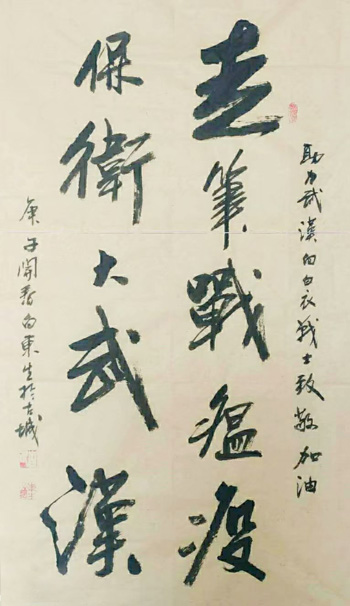 助力武漢向白衣战士致敬加油
走筆戰瘟疫
保衛大武漢
庚子開春向東生於古城